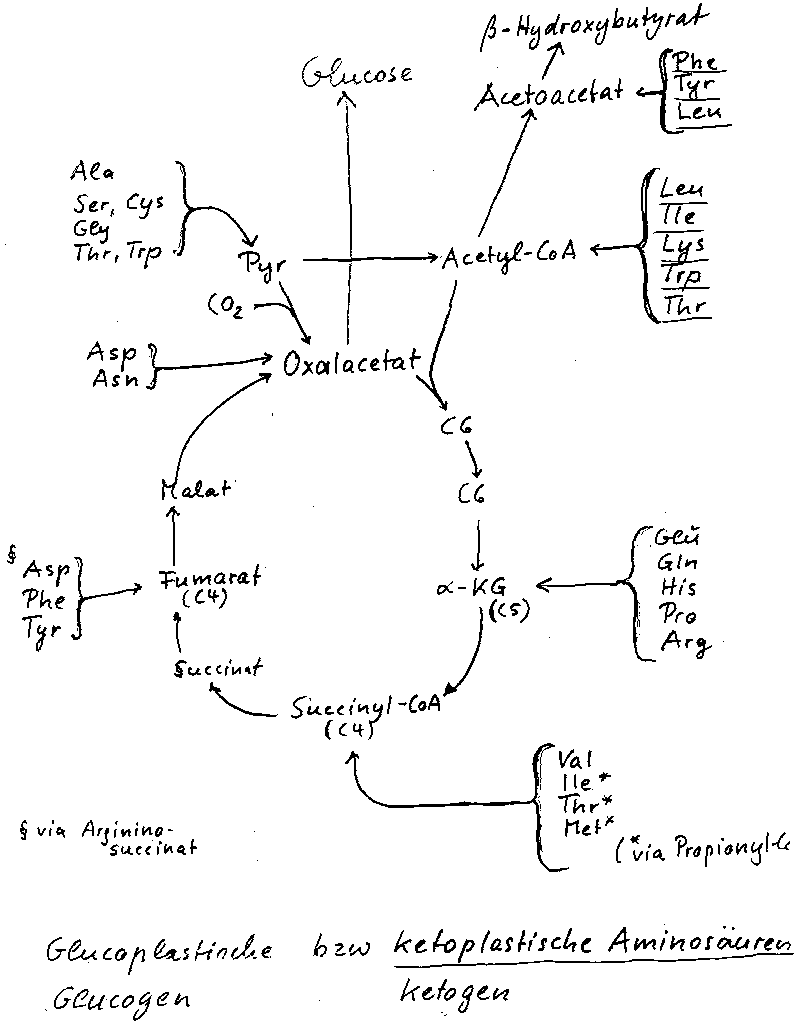 β-Hydroxybutyrat
Glucose
Acetoacetat
Phe
Tyr
Leu
Ala
Ser, Cys
Gly
Thr, Trp
Pyr
Acetyl-CoA
Leu
Ile
Lys
Trp
Thr
CO₂
Asp
Asn
Oxalacetat
C6
Malat
C6
§
Asp
Phe
Tyr
Fumarat
(C4)
α-KG
(C5)
Glu
Gln
His
Pro
Arg
Succinat
Succinyl-CoA
(C4)
Val
Ile*
Thr*
Met*
(*via Propionyl-C
§ via Arginino-
succinat
Glucoplastische bzw ketoplastische Aminosäuren
Glucogen ketogen